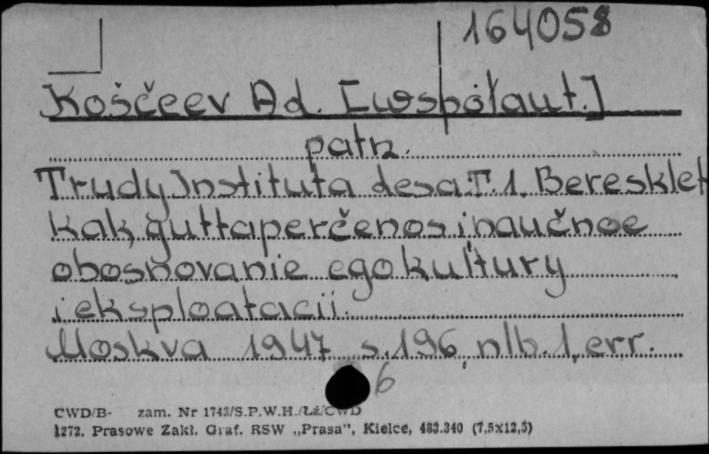 164058
Koščeev Ad. [współaut.]
patrz.
Trudy Instituta desa. T. 1. Beresklet
kak guttaperčenos i naučnoe
obosnovanie ego kul'tury
i eksploatacii.
Moskva 1947 s. 196, nlb. 1, err.
6
CWD/B- zam. Nr 1743/S.P.W.H./ŁŻ/CWD
1272. Prasowe Zakł. Graf. RSW „Prasa", Kielce, 483.340 (7,5x12,5)